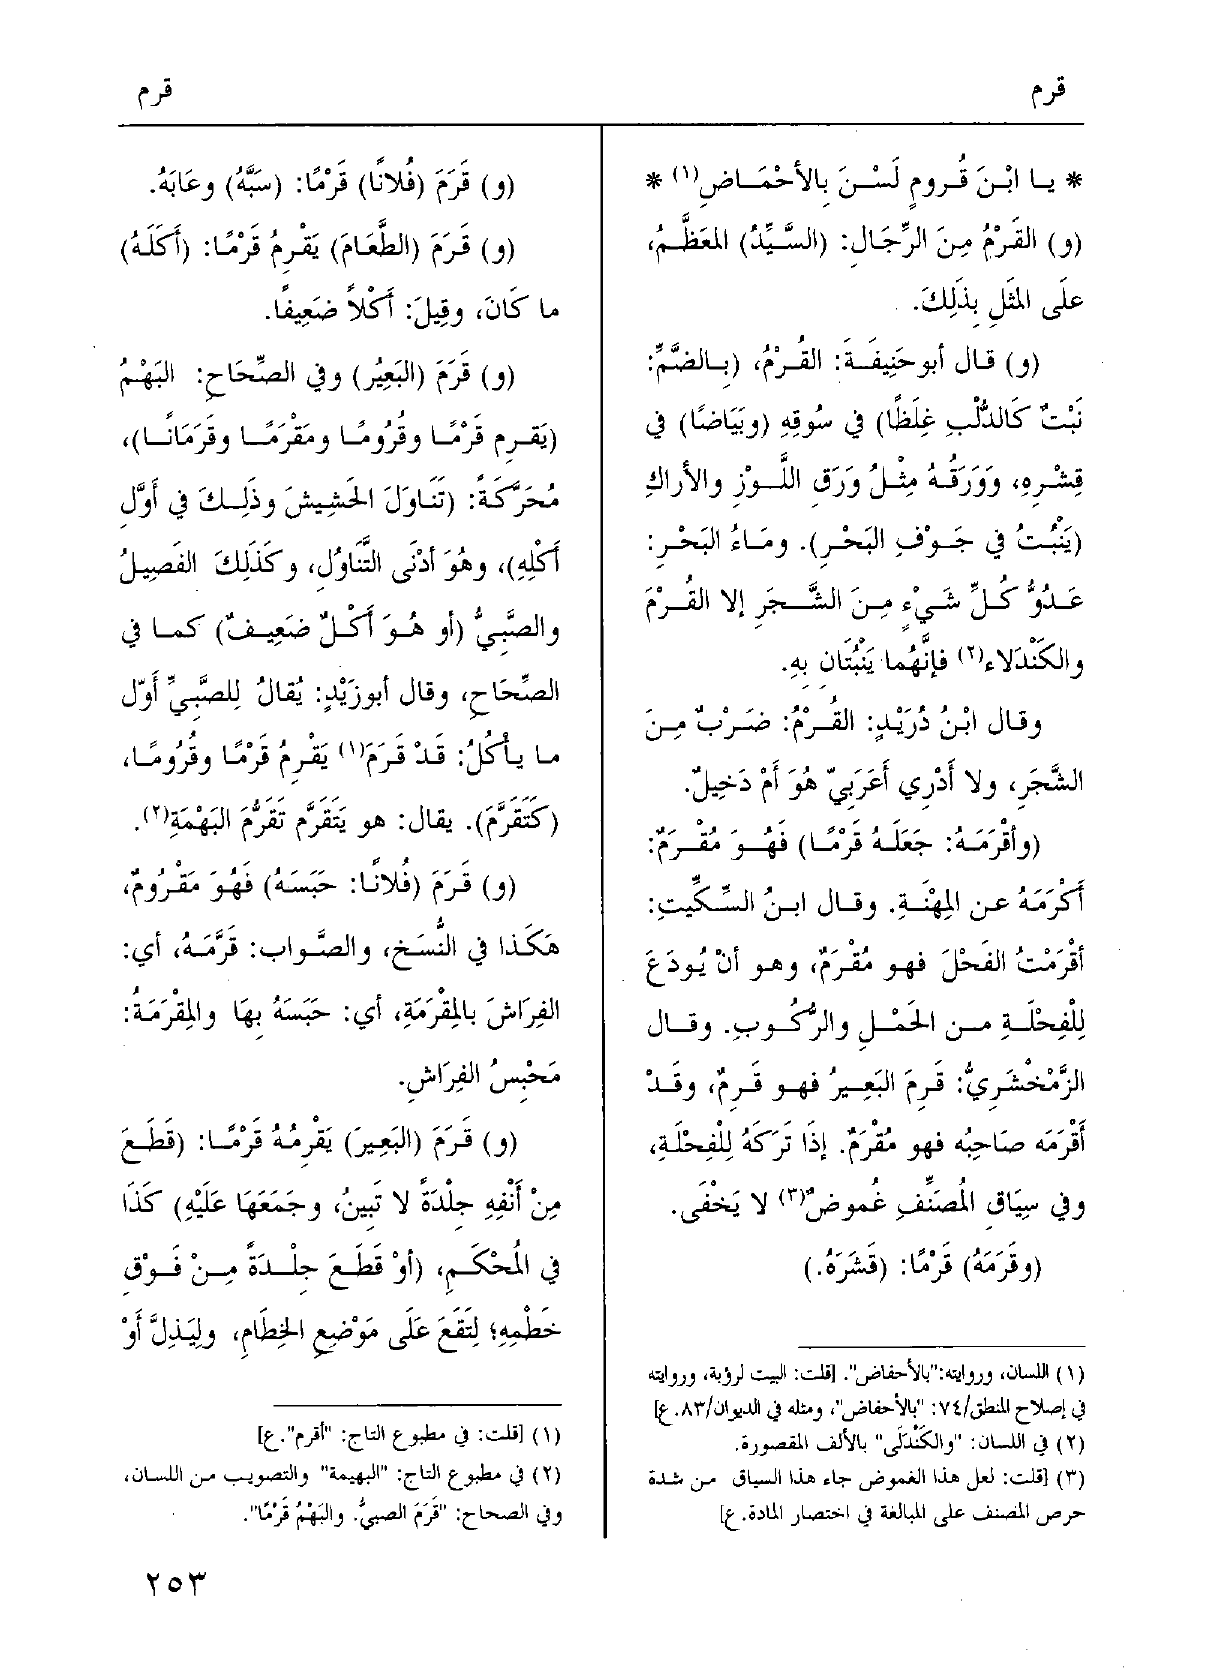 قرم
قرم
* يـا ابْـنَ قُـرومٍ لَسْـنَ بِالأَحْمَـاضِ(١) *
(و) القَرْمُ مِنَ الرِّجَال: (السَّيِّدُ) المعَظَّمُ،
علَى المَثَلِ بِذَلِكَ.
(و) قـال أبوحَنِيفَـة: القُـرْمُ، (بِـالضَّمِّ:
نَبْتٌ كَالدُّلْبِ غِلَظًا) في سُوقِهِ (وبَيَاضًا) في
قِشْـرِهِ، وَوَرَقُـهُ مِثْـلُ وَرَقِ اللَّـوْزِ والأَراكِ
(يَنْبُـتُ في جَـوْفِ البَحْـرِ). ومَـاءُ البَحْـرِ:
عَـدُوُّ كُـلِّ شَـيْءٍ مِـنَ الشَّـجَرِ إلا القُـرْمَ
والكَنْدَلاَء(٢) فإنَّهُما يَنْبُتَان بِهِ.
وقال ابْنُ دُرَيْدٍ: القُـرْمُ: ضَـرْبٌ مِـنَ
الشَّجَرِ، ولا أَدْرِي أَعَرَبيٌّ هُوَ أَمْ دَخِيلٌ.
(وأَقْرَمَـهُ: جَعَلَـهُ قَرْمًـا) فَهُـوَ مُقْـرَمٌ:
أَكْرَمَهُ عـن المِهْنَةِ. وقـال ابـنُ السِّـكِّيتِ:
أَقْرَمْتُ الفَحْلَ فهو مُقْرَمٌ، وهـو أَنْ يُودَعَ
لِلْفِحْلَـةِ مـن الحَمْـلِ والرُّكُـوبِ. وقـال
الزَّمَخْشَرِيُّ: قَرِمَ البَعِيرُ فهـو قَـرِمٌ، وقَـدْ
أَقْرَمَه صَاحِبُه فهو مُقْرَمٌ. إذَا تَرَكَهُ لِلْفِحْلَةِ،
وفي سِيَاقِ المُصَنِّفِ غُموضٌ(٣) لا يَخْفَى.
(وقَرَمَهُ) قَرْمًا: (قَشَرَهُ.)
(١) اللسان، وروايته:"بالأحفاض". [قلت: البيت لرؤبة، وروايته
في إصلاح المنطق/٧٤: "بالأحفاض"، ومثله في الديوان/٨٣.ع]
(٢) في اللسان: "والكَنْدَلَى" بالألف المقصورة.
(٣) [قلت: لعل هذا الغموض جاء هذا السياق من شدة
حرص المصنف على المبالغة في اختصار المادة.ع]
(و) قَرَمَ (فُلانًا) قَرْمًا: (سَبَّهُ) وعَابَهُ.
(و) قَرَمَ (الطَّعَامَ) يَقْرِمُ قَرْمًا: (أَكَلَهُ)
ما كَانَ، وقِيلَ: أَكْلاً ضَعِيفًا.
(و) قَرَمَ (البَعِيرُ) وفي الصِّحَاحِ: البَهْمُ
(يَقـرِم قَرْمًـا وقُرُومًـا ومَقْرَمًـا وقَرَمَانًـا)،
مُحَرَّكَةً: (تَنَاوَلَ الحَشِيشَ وذَلِـكَ في أَوَّلِ
أَكْلِهِ)، وهُوَ أَدْنَى التَّنَاوُلِ، وكَذَلِكَ الفَصِيلُ
والصَّبِيُّ (أو هُـوَ أَكْـلٌ ضَعِيـفٌ) كمـا في
الصِّحَاحِ، وقال أبوزَيْدٍ: يُقَالُ لِلصَّبِيِّ أَوّل
مـا يـأْكُلُ: قَـدْ قَرَمَ(١) يَقْرِمُ قَرْمًا وقُرُومًـا،
(كَتَقَرَّمَ). يقال: هو يَتَقَرَّم تَقَرُّمَ البَهْمَةِ(٢).
(و) قَرَمَ (فُلانًا: حَبَسَهُ) فَهُوَ مَقْرُومٌ،
هَكَذا في النُّسَخِ، والصَّـواب: قَرَّمَـهُ، أي:
الفِرَاشَ بالمِقْرَمَةِ، أي: حَبَسَهُ بِهَا والمِقْرَمَةُ:
مَحْبِسُ الفِرَاشِ.
(و) قَرَمَ (البَعِيرَ) يَقْرِمُهُ قَرْمًـا: (قَطَـعَ
مِنْ أَنْفِهِ جِلْدَةً لا تَبِينُ، وجَمَعَهَا عَلَيْهِ) كَذَا
في المُحْكَـمِ، (أَوْ قَطَـعَ جِلْـدَةً مِـنْ فَـوْقِ
خَطْمِهِ؛ لِتَقَعَ عَلَى مَوْضِعِ الخِطَامِ، ولِيَذِلَّ أَوْ
(١) [قلت: في مطبوع التاج: "أقرم".ع]
(٢) في مطبوع التاج: "البهيمة" والتصويب مـن اللسان،
وفي الصحاح: "قَرَمَ الصبيُّ. والبَهْمُ قَرْمًا".
٢٥٣